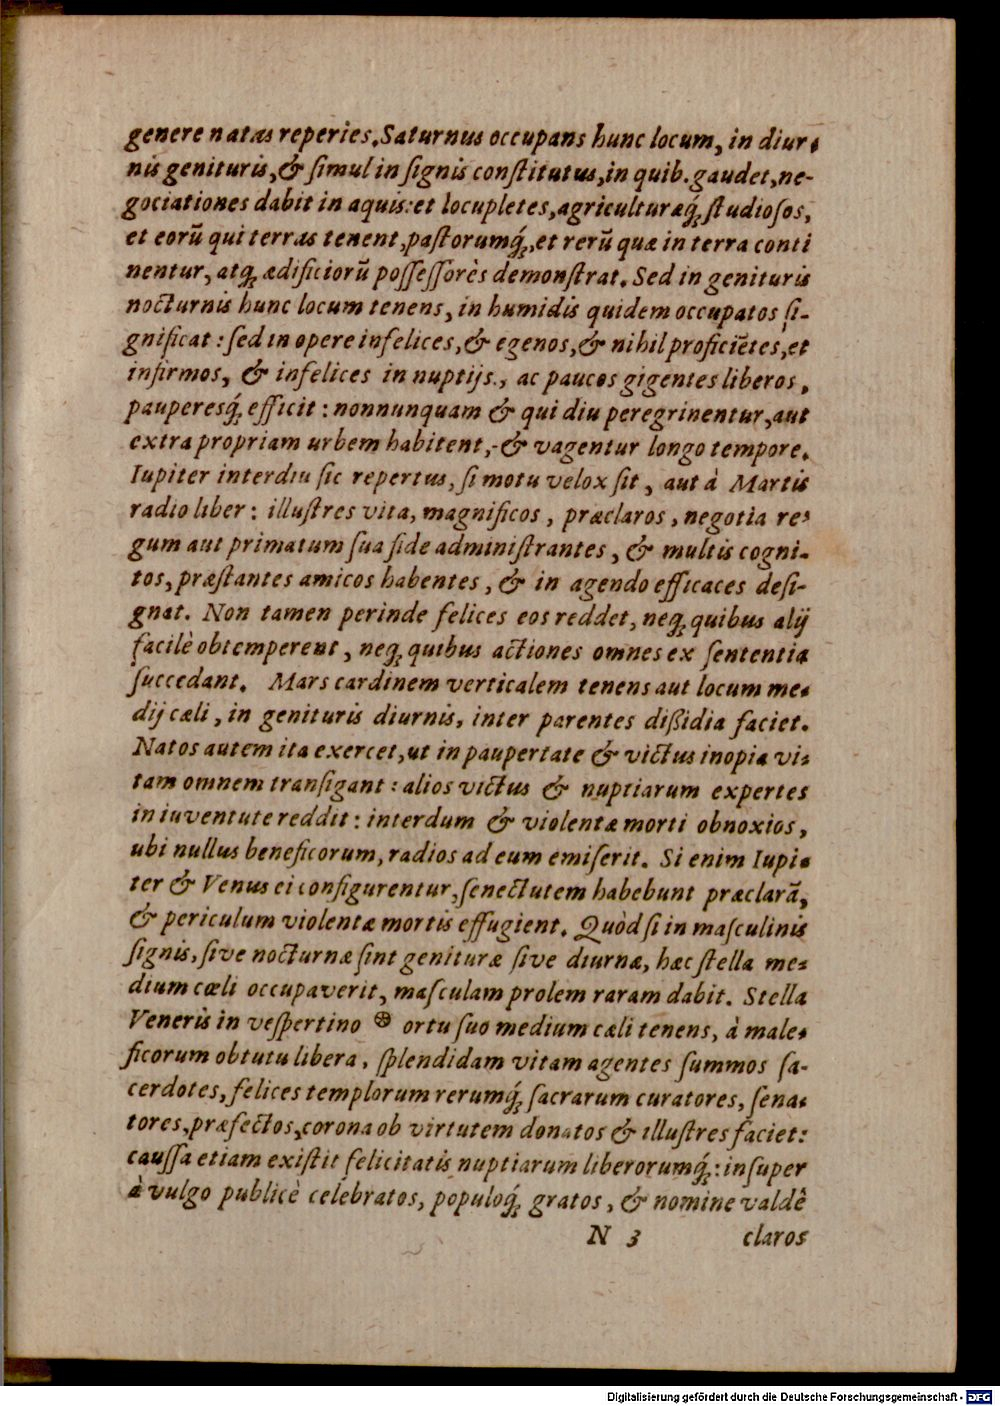 genere natas reperies. Saturnus occupans hunc locum, in diur-
nis genituris, & simul in signis constitutus, in quib. gaudet, ne-
gociationes dabit in aquis: et locupletes, agriculturæq́; studiosos,
et eorũ qui terras tenent, pastorumq́;, et rerũ quæ in terra conti
nentur, atq; ædificiorũ possessorès demonstrat. Sed in genituris
nocturnis hunc locum tenens, in humidis quidem occupatos si-
gnificat: sed in opere infelices, & egenos, & nihil proficiẽtes, et
infirmos, & infelices in nuptijs., ac paucos gigentes liberos,
pauperesq́; efficit: nonnunquam & qui diu peregrinentur, aut
extra propriam urbem habitent, & vagentur longo tempore.
Iupiter interdiu sic repertus, si motu velox sit, aut à Martis
radio liber: illustres vita, magnificos, præclaros, negotia re-
gum aut primatum sua fide administrantes, & multis cogni-
tos, præstantes amicos habentes, & in agendo efficaces desi-
gnat. Non tamen perinde felices eos reddet, neq; quibus alij
facilè obtemperent, neq; quibus actiones omnes ex sententia
succedant. Mars cardinem verticalem tenens aut locum me-
dij cæli, in genituris diurnis, inter parentes dißidia faciet.
Natos autem ita exercet, ut in paupertate & victus inopia vi-
tam omnem transigant: alios victus & nuptiarum expertes
in iuventute reddit: interdum & violentæ morti obnoxios,
ubi nullus beneficorum, radios ad eum emiserit. Si enim Iupi-
ter & Venus ei configurentur, senectutem habebunt præclarã,
& periculum violentæ mortis effugient. Quòd si in masculinis
signis, sive nocturnæ sint genituræ sive diurnæ, hæc stella me-
dium cœli occupaverit, masculam prolem raram dabit. Stella
Veneris in vespertino ⊛ ortu suo medium cæli tenens, à male-
ficorum obtutu libera, splendidam vitam agentes summos sa-
cerdotes, felices templorum rerumq́; sacrarum curatores, sena-
tores, præfectos, corona ob virtutem donatos & illustres faciet:
caussa etiam existit felicitatis nuptiarum liberorumq́;: insuper
à vulgo publicè celebratos, populoq́; gratos, & nomine valdê
N 3 claros
Digitalisierung gefördert durch die Deutsche Forschungsgemeinschaft - DFG